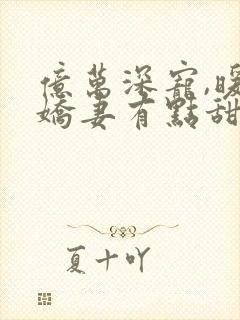 億萬深寵,暖
嬌妻有點甜
夏十吖